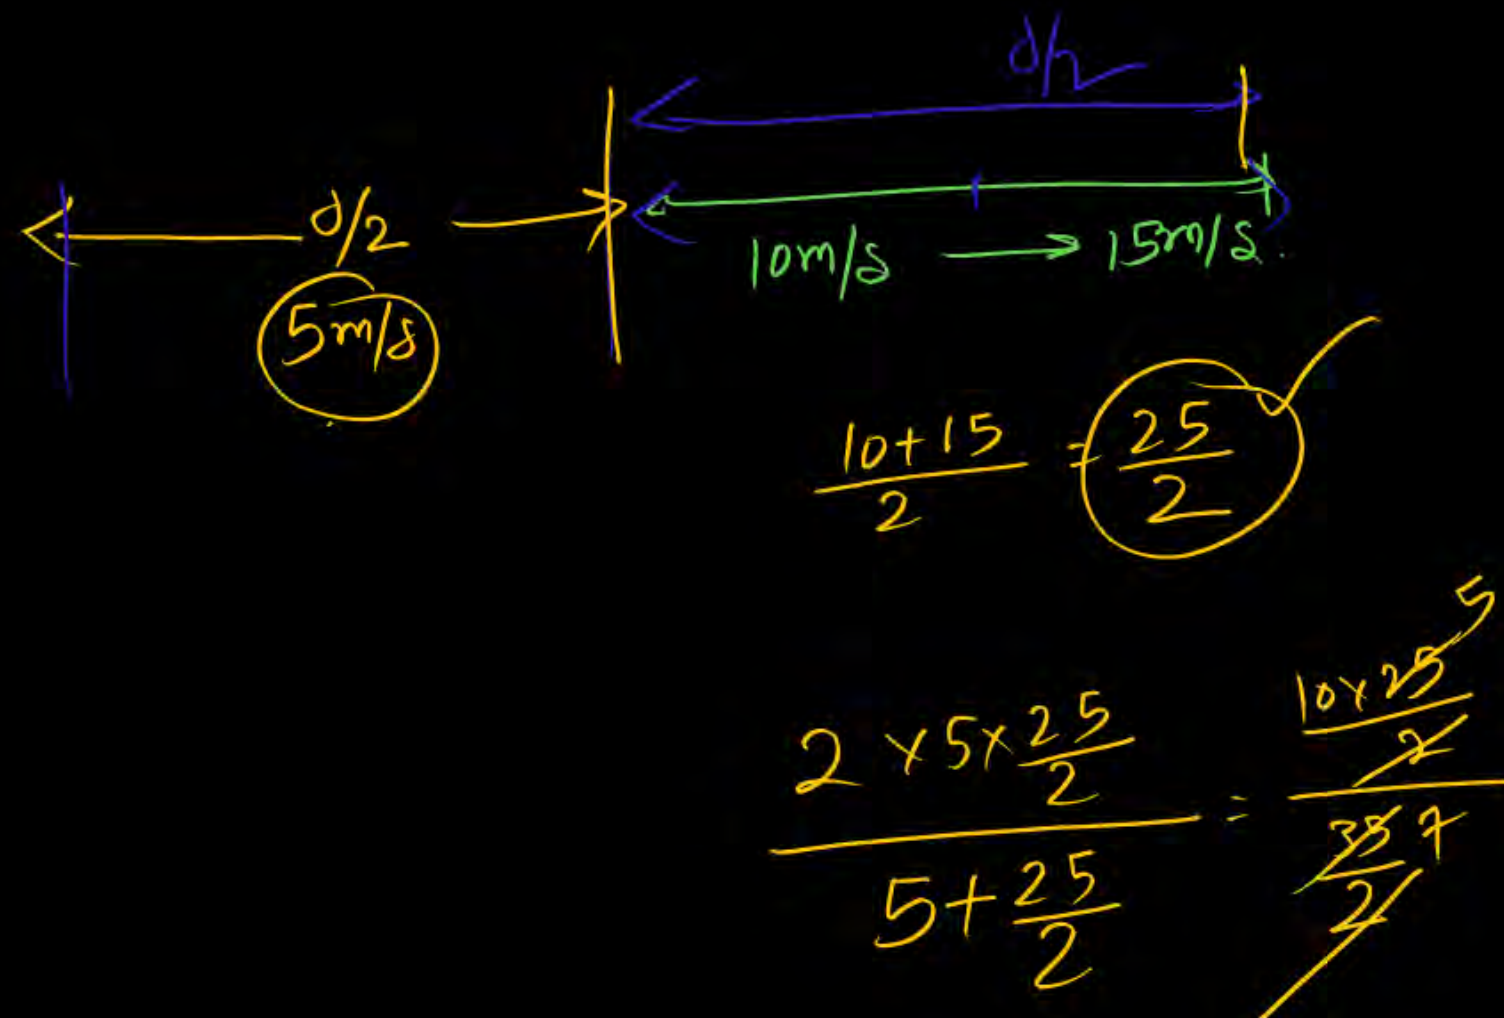 d/2
d/2
5m/s
10m/s → 15m/s.
(10+15)/2 = 25/2
(2 × 5 × 25/2)/(5 + 25/2) = (10 × 25/2)/(35/2)
5
7